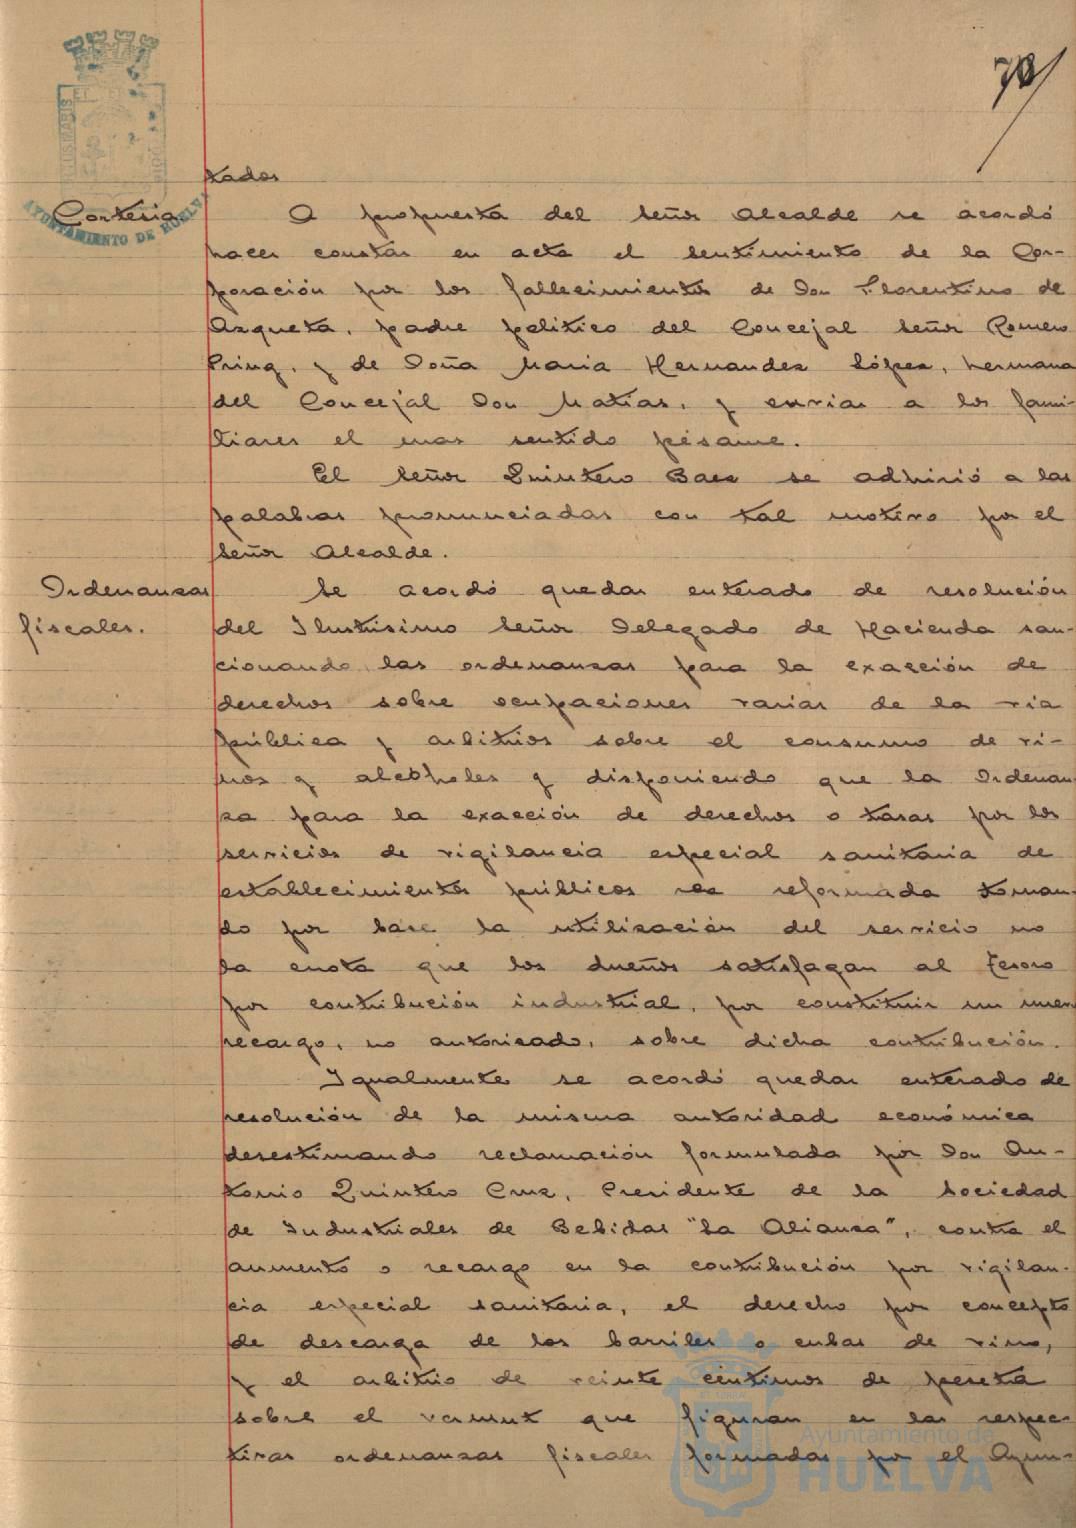 70
tados
Cortesia
A propuesta del señor Alcalde se acordó
hacer constar en acta el sentimiento de la Cor-
poración por los fallecimientos de Don Florentino de
Azqueta, padre politico del Concejal señor Romero
Pring, y de Doña Maria Hernandez López, hermana
del Concejal Don Matias, y enviar a los fami-
liares el mas sentido pésame.
El señor Quintero Baez se adhirió a las
palabras pronunciadas con tal motivo por el
señor Alcalde.
Ordenanzas
fiscales.
Se acordó quedar enterado de resolución
del Ilustrisimo señor Delegado de Hacienda san-
cionando las ordenanzas para la exacción de
derechos sobre ocupaciones varias de la via
pública y arbitrios sobre el consumo de vi-
nos y alcoholes y disponiendo que la Ordenan-
za para la exacción de derechos o tasas por los
servicios de vigilancia especial sanitaria de
establecimientos públicos sea reformada toman-
do por base la utilización del servicio no
la cuota que los dueños satisfagan al Tesoro
por contribución industrial, por constituir un nuevo
recargo, no autorizado, sobre dicha contribución.
Igualmente se acordó quedar enterado de
resolución de la misma autoridad económica
desestimando reclamación formulada por Don An-
tonio Quintero Cruz, Presidente de la Sociedad
de Industriales de Bebidas "La Alianza", contra el
aumento o recargo en la contribución por vigilan-
cia especial sanitaria, el derecho por concepto
de descarga de los barriles o cubas de vino,
y el arbitrio de veinte céntimos de peseta
sobre el vermut que figuran en las respec-
tivas ordenanzas fiscales formadas por el Ayun-
AYUNTAMIENTO DE HUELVA
Ayuntamiento de
HUELVA